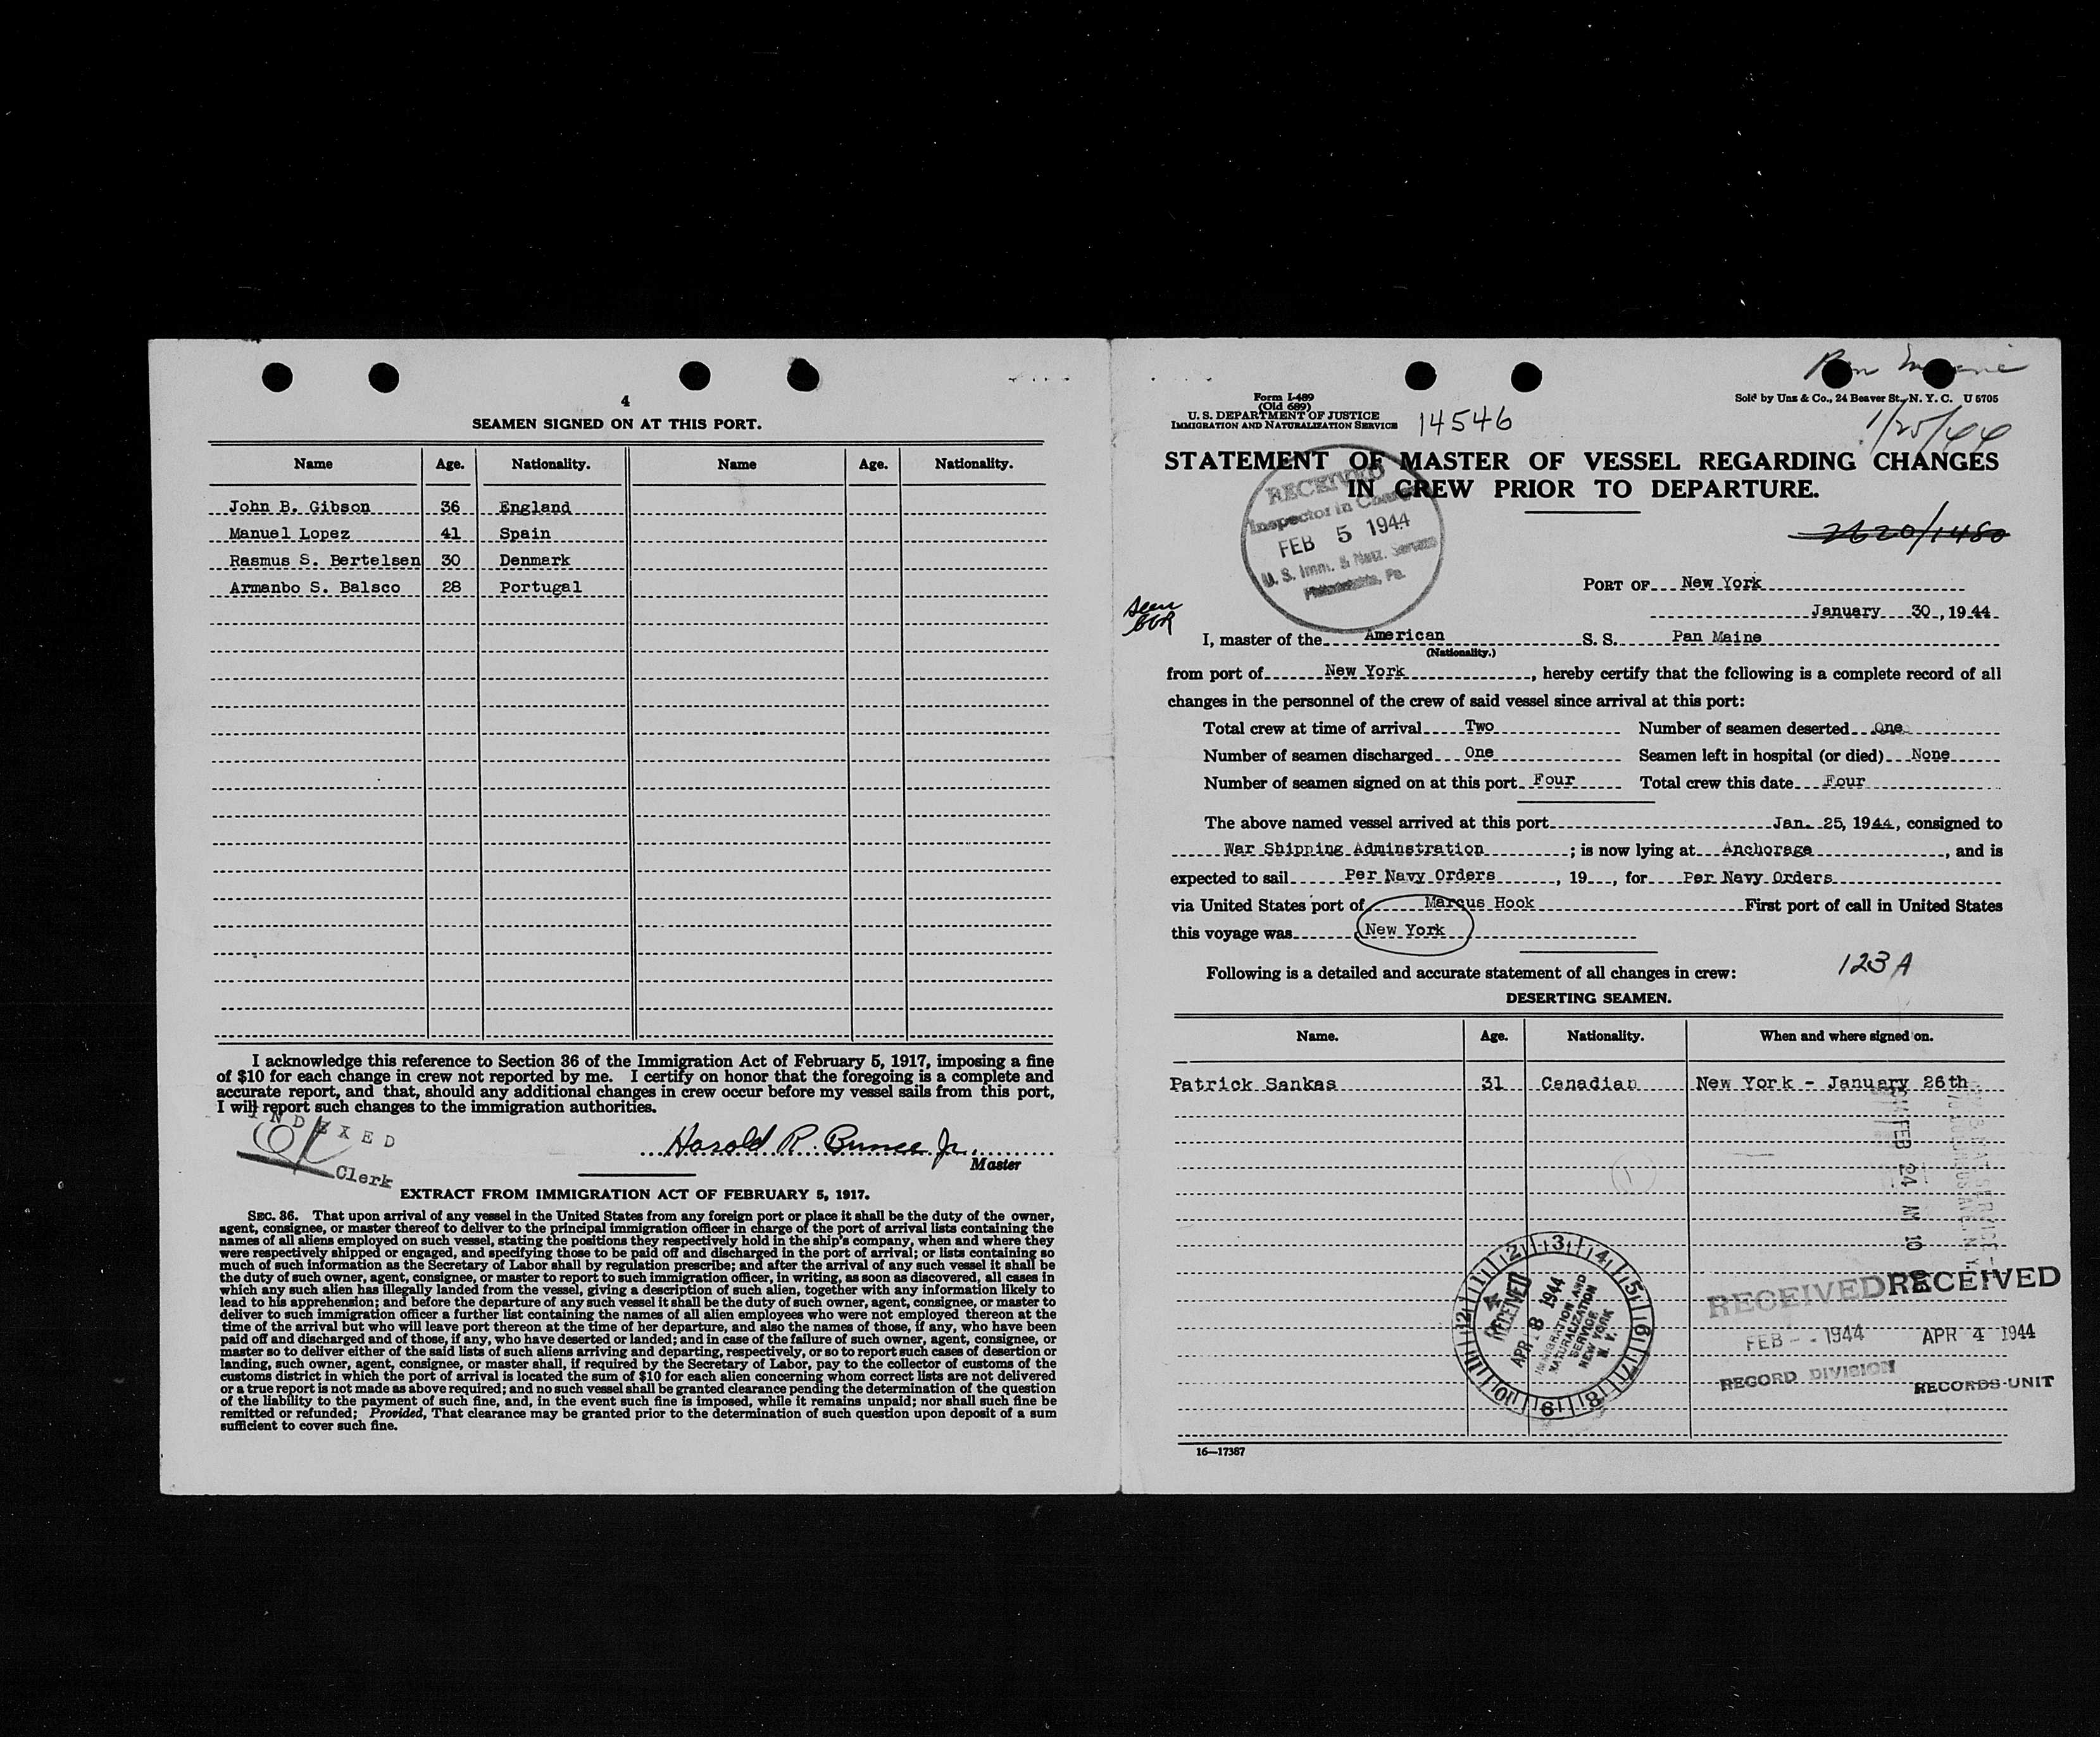 4
SEAMEN SIGNED ON AT THIS PORT.
Name Age. Nationality. Name Age. Nationality.
John B. Gibson 36 England
Manuel Lopez 41 Spain
Rasmus S. Bertelsen 30 Denmark
Armanbo S. Balsco 28 Portugal
I acknowledge this reference to Section 36 of the Immigration Act of February 5, 1917, imposing a fine
of $10 for each change in crew not reported by me. I certify on honor that the foregoing is a complete and
accurate report, and that, should any additional changes in crew occur before my vessel sails from this port,
I will report such changes to the immigration authorities.
INDEXED
Clerk
Harold R. Bunce Jr.
Master
EXTRACT FROM IMMIGRATION ACT OF FEBRUARY 5, 1917.
SEC. 36. That upon arrival of any vessel in the United States from any foreign port or place it shall be the duty of the owner,
agent, consignee, or master thereof to deliver to the principal immigration officer in charge of the port of arrival lists containing the
names of all aliens employed on such vessel, stating the positions they respectively hold in the ship's company, when and where they
were respectively shipped or engaged, and specifying those to be paid off and discharged in the port of arrival; or lists containing so
much of such information as the Secretary of Labor shall by regulation prescribe; and after the arrival of any such vessel it shall be
the duty of such owner, agent, consignee, or master to report to such immigration officer, in writing, as soon as discovered, all cases in
which any such alien has illegally landed from the vessel, giving a description of such alien, together with any information likely to
lead to his apprehension; and before the departure of any such vessel it shall be the duty of such owner, agent, consignee, or master to
deliver to such immigration officer a further list containing the names of all alien employees who were not employed thereon at the
time of the arrival but who will leave port thereon at the time of her departure, and also the names of those, if any, who have been
paid off and discharged and of those, if any, who have deserted or landed; and in case of the failure of such owner, agent, consignee, or
master so to deliver either of the said lists of such aliens arriving and departing, respectively, or so to report such cases of desertion or
landing, such owner, agent, consignee, or master shall, if required by the Secretary of Labor, pay to the collector of customs of the
customs district in which the port of arrival is located the sum of $10 for each alien concerning whom correct lists are not delivered
or a true report is not made as above required; and no such vessel shall be granted clearance pending the determination of the question
of the liability to the payment of such fine, and, in the event such fine is imposed, while it remains unpaid; nor shall such fine be
remitted or refunded; Provided, That clearance may be granted prior to the determination of such question upon deposit of a sum
sufficient to cover such fine.
Pan Maine
Form I-489
(Old 689)
U. S. DEPARTMENT OF JUSTICE
IMMIGRATION AND NATURALIZATION SERVICE
14546
Sold by Unz & Co., 24 Beaver St., N. Y. C. U 5705
1/25/44
STATEMENT OF MASTER OF VESSEL REGARDING CHANGES
IN CREW PRIOR TO DEPARTURE.
RECEIVED
Inspector in Charge
FEB 5 1944
U. S. Imm. & Natz. Service
Philadelphia, Pa.
2620/1480
PORT OF New York
January 30, 1944
seen
I, master of the American S. S. Pan Maine
(Nationality.)
from port of New York, hereby certify that the following is a complete record of all
changes in the personnel of the crew of said vessel since arrival at this port:
Total crew at time of arrival Two Number of seamen deserted One
Number of seamen discharged One Seamen left in hospital (or died) None
Number of seamen signed on at this port Four Total crew this date Four
The above named vessel arrived at this port Jan. 25, 1944, consigned to
War Shipping Adminstration; is now lying at Anchorage, and is
expected to sail Per Navy Orders, 19, for Per Navy Orders
via United States port of Marcus Hook First port of call in United States
this voyage was New York
Following is a detailed and accurate statement of all changes in crew:
123A
DESERTING SEAMEN.
Name. Age. Nationality. When and where signed on.
Patrick Sankas 31 Canadian New York - January 26th
FEB 24 AM 10
12 1 2 3 4 5 6 7 8 9 10 11
RECEIVED
APR 8 1944
IMMIGRATION AND
NATURALIZATION
SERVICE
NEW YORK
N. Y.
RECEIVED
FEB 1944
RECORD DIVISION
RECEIVED
APR 4 1944
RECORDS UNIT
16—17387